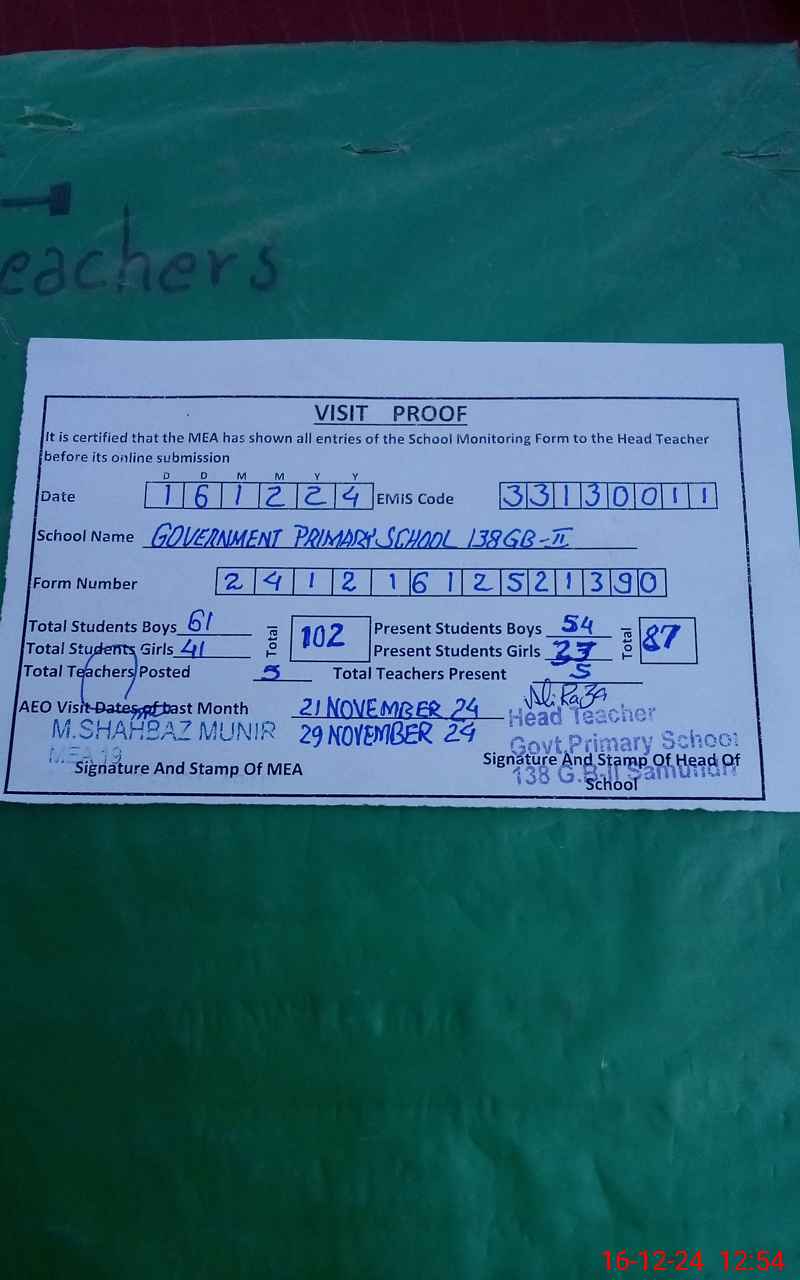 eachers
VISIT PROOF
It is certified that the MEA has shown all entries of the School Monitoring Form to the Head Teacher
before its online submission
D D M M Y Y
Date 1 6 1 2 2 4 EMIS Code 3 3 1 3 0 0 1 1
School Name GOVERNMENT PRIMARY SCHOOL 138GB-II
Form Number 2 4 1 2 1 6 1 2 5 2 1 3 9 0
Total Students Boys 61 Total 102 Present Students Boys 54 Total 87
Total Students Girls 41 Present Students Girls
Total Teachers Posted 5 Total Teachers Present 5
AEO Visit Dates of Last Month 21 NOVEMBER 24 Ali Raza
29 NOVEMBER 24
M.SHAHBAZ MUNIR
MEA 19
Signature And Stamp Of MEA
Head Teacher
Govt.Primary School
138 G.B-II Samundri
Signature And Stamp Of Head Of
School
16-12-24 12:54